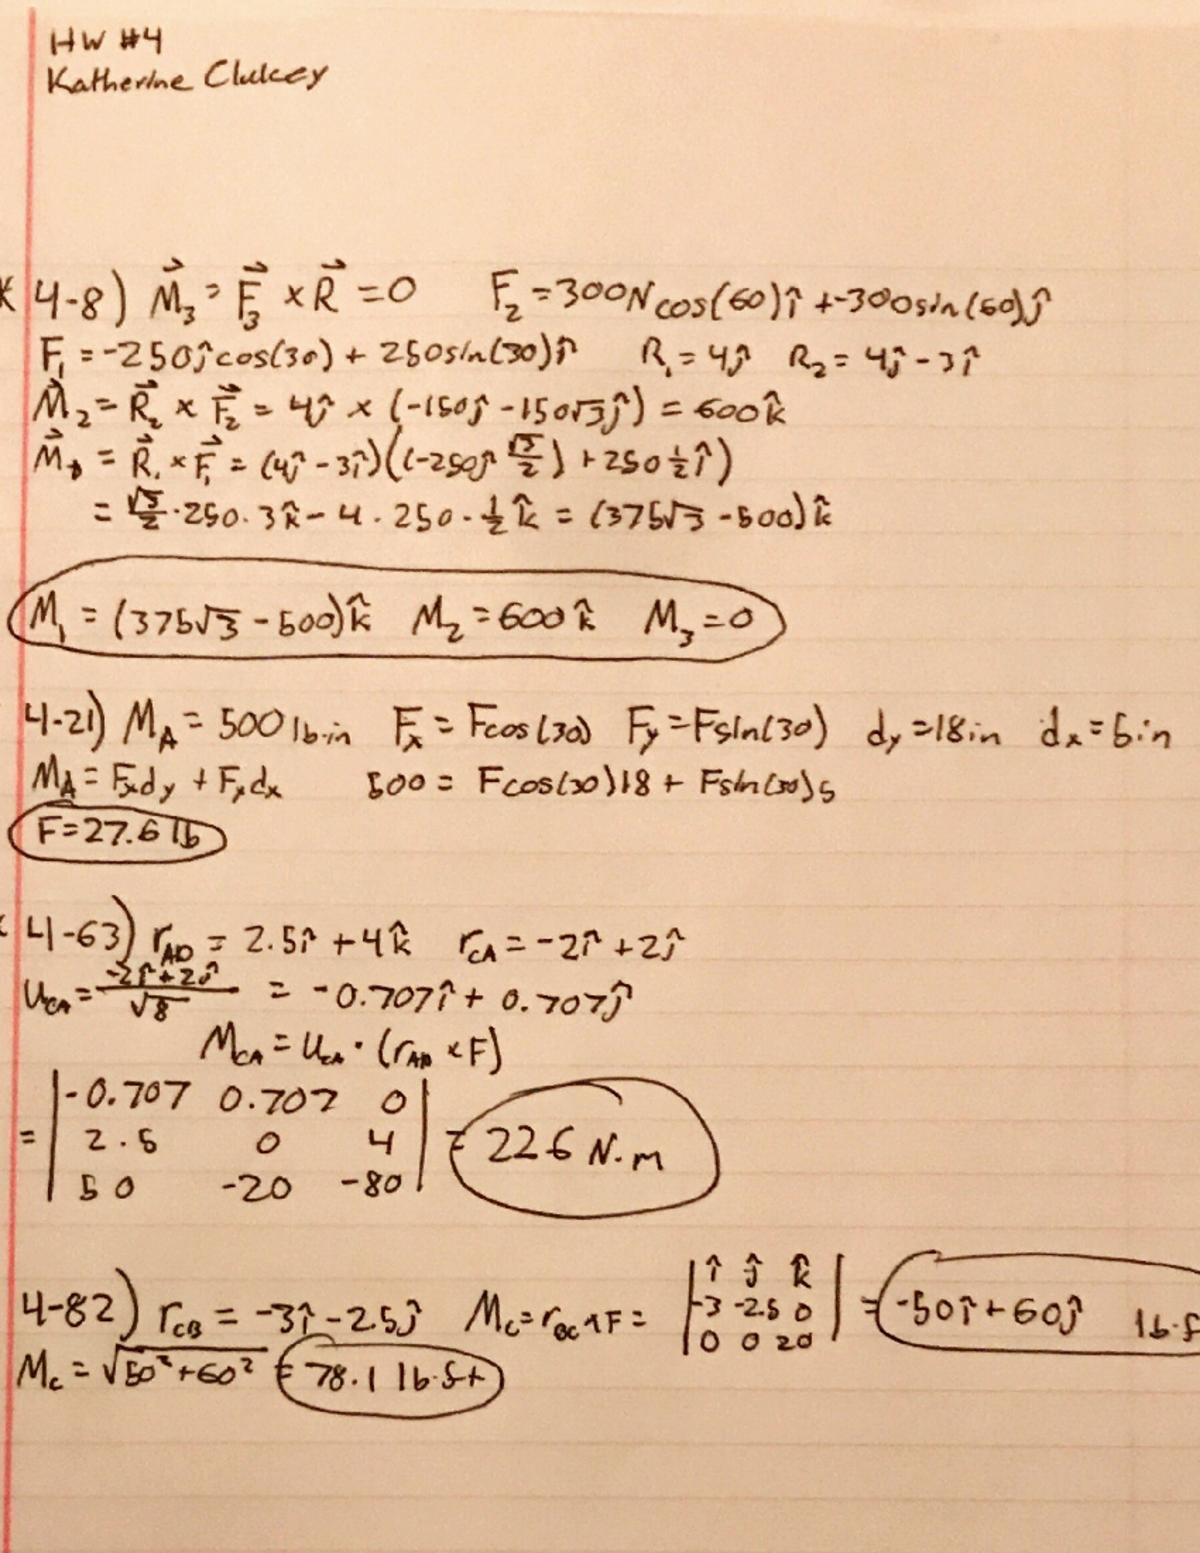 HW #4
Katherine Clukey
4-8) M⃗₃ = F⃗₃ × R⃗ = 0 F₂ = 300N cos(60)î + -300sin(60)ĵ
F₁ = -250ĵcos(30) + 250sin(30)î R₁ = 4ĵ R₂ = 4ĵ - 3î
M⃗₂ = R⃗₂ × F⃗₂ = 4ĵ × (-150ĵ - 150√3ĵ) = 600k̂
M⃗ = R⃗₁ × F⃗₁ = (4ĵ - 3î)((-250ĵ √3/2) + 250 1/2 î)
= √3/2 · 250 · 3k̂ - 4 · 250 · 1/2 k̂ = (375√3 - 500)k̂
M₁ = (375√3 - 500)k̂ M₂ = 600k̂ M₃ = 0
4-21) M_A = 500 lb·in F_x = Fcos(30) F_y = Fsin(30) d_y = 18in d_x = 5in
M_A = F_x d_y + F_y d_x 500 = Fcos(30)18 + Fsin(30)5
F = 27.6 lb
4-63) r_AD = 2.5î + 4k̂ r_CA = -2î + 2ĵ
u_CA = (-2î + 2ĵ)/√8 = -0.707î + 0.707ĵ
M_CA = u_CA · (r_AD × F)
| -0.707 0.707 0 |
= | 2.5 0 4 | = 226 N·m
| 50 -20 -80 |
4-82) r_CB = -3î - 2.5ĵ M_C = r_BC × F = | î ĵ k̂ | -3 -2.5 0 | 0 0 20 | = -50î + 60ĵ lb·f
M_C = √50² + 60² = 78.1 lb·ft